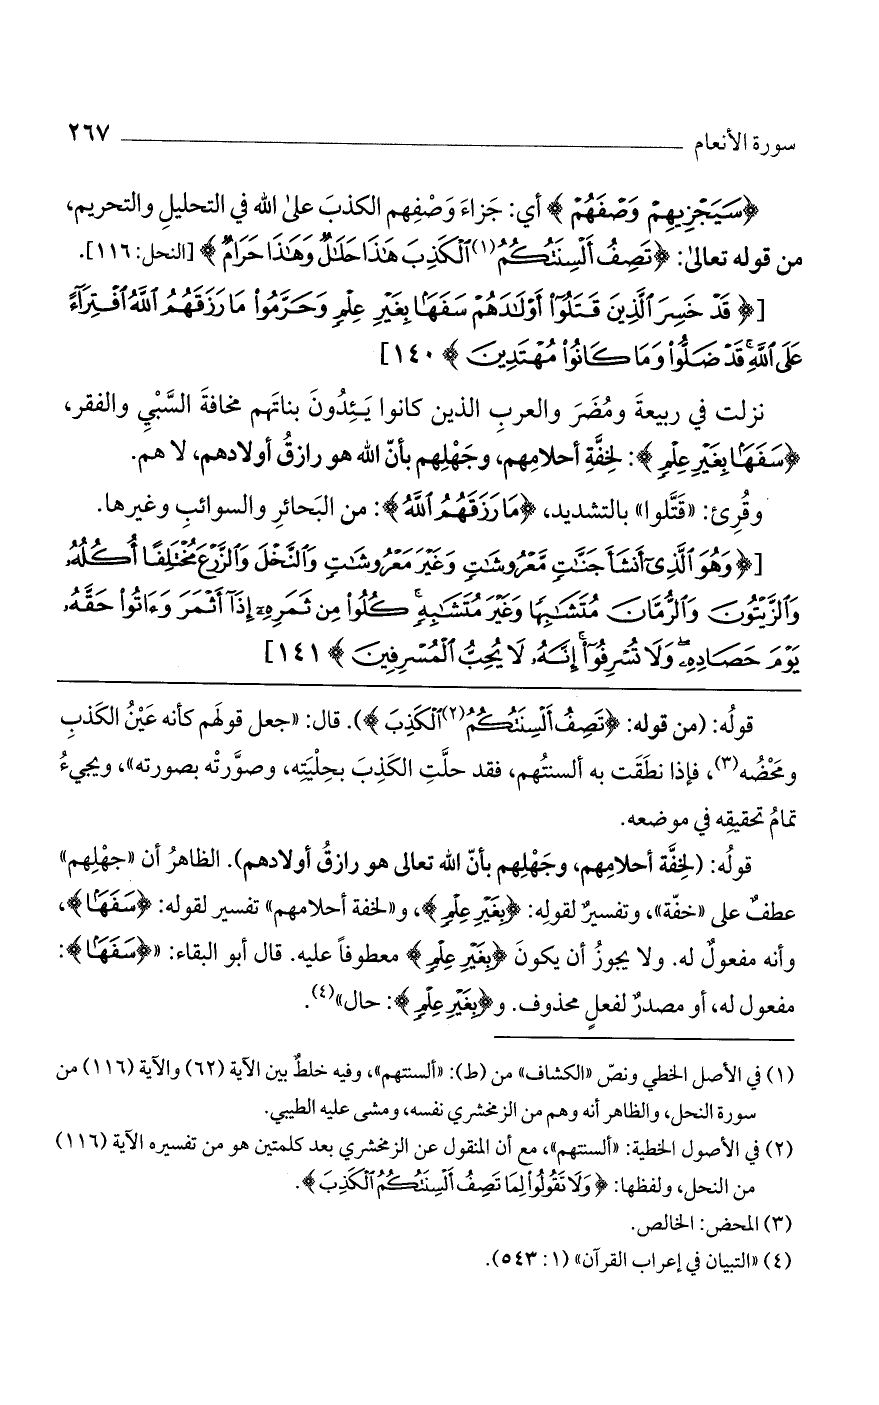 سورة الأنعام ٢٦٧
﴿سَيَجْزِيهِمْ وَصْفَهُمْ﴾ أي: جَزاءَ وَصْفِهم الكذبَ على الله في التحليلِ والتحريم،
من قوله تعالى: ﴿تَصِفُ أَلْسِنَتُكُمُ(١) ٱلْكَذِبَ هَٰذَا حَلَٰلٌ وَهَٰذَا حَرَامٌ﴾ [النحل: ١١٦].
[﴿قَدْ خَسِرَ ٱلَّذِينَ قَتَلُوٓا۟ أَوْلَٰدَهُمْ سَفَهًۢا بِغَيْرِ عِلْمٍ وَحَرَّمُوا۟ مَا رَزَقَهُمُ ٱللَّهُ ٱفْتِرَآءً
عَلَى ٱللَّهِ ۚ قَدْ ضَلُّوا۟ وَمَا كَانُوا۟ مُهْتَدِينَ﴾ ١٤٠]
نزلت في ربيعةَ ومُضَرَ والعربِ الذين كانوا يَئِدُونَ بناتَهم مخافةَ السَّبْيِ والفقر،
﴿سَفَهًۢا بِغَيْرِ عِلْمٍ﴾: لِخفَّةِ أحلامِهم، وجَهْلِهم بأنّ الله هو رازقُ أولادهم، لا هم.
وقُرِئ: «قَتَّلوا» بالتشديد، ﴿مَا رَزَقَهُمُ ٱللَّهُ﴾: من البَحائرِ والسوائبِ وغيرها.
[﴿وَهُوَ ٱلَّذِىٓ أَنشَأَ جَنَّٰتٍ مَّعْرُوشَٰتٍ وَغَيْرَ مَعْرُوشَٰتٍ وَٱلنَّخْلَ وَٱلزَّرْعَ مُخْتَلِفًا أُكُلُهُۥ
وَٱلزَّيْتُونَ وَٱلرُّمَّانَ مُتَشَٰبِهًا وَغَيْرَ مُتَشَٰبِهٍ ۚ كُلُوا۟ مِن ثَمَرِهِۦٓ إِذَآ أَثْمَرَ وَءَاتُوا۟ حَقَّهُۥ
يَوْمَ حَصَادِهِۦ ۖ وَلَا تُسْرِفُوٓا۟ ۚ إِنَّهُۥ لَا يُحِبُّ ٱلْمُسْرِفِينَ﴾ ١٤١]
قولُه: (من قوله: ﴿تَصِفُ أَلْسِنَتُكُمُ(٢) ٱلْكَذِبَ﴾). قال: «جعل قولَهم كأنه عَيْنُ الكذبِ
ومَحْضُه(٣)، فإذا نطَقَت به ألسنتُهم، فقد حلَّتِ الكَذِبَ بحِلْيَتِه، وصوَّرتْه بصورته»، ويجيءُ
تمامُ تحقيقِه في موضعه.
قولُه: (لِخفَّة أحلامِهم، وجَهْلِهم بأنّ الله تعالى هو رازقُ أولادهم). الظاهرُ أن «جهْلِهم»
عطفٌ على «خفّة»، وتفسيرٌ لقولِه: ﴿بِغَيْرِ عِلْمٍ﴾، و«لخفة أحلامهم» تفسير لقوله: ﴿سَفَهًۢا﴾،
وأنه مفعولٌ له. ولا يجوزُ أن يكونَ ﴿بِغَيْرِ عِلْمٍ﴾ معطوفاً عليه. قال أبو البقاء: «﴿سَفَهًۢا﴾:
مفعول له، أو مصدرٌ لفعلٍ محذوف. و﴿بِغَيْرِ عِلْمٍ﴾: حال»(٤).
(١) في الأصل الخطي ونصّ «الكشاف» من (ط): «ألسنتهم»، وفيه خلطٌ بين الآية (٦٢) والآية (١١٦) من
سورة النحل، والظاهر أنه وهم من الزمخشري نفسه، ومشى عليه الطيبي.
(٢) في الأصول الخطية: «ألسنتهم»، مع أن المنقول عن الزمخشري بعد كلمتين هو من تفسيره الآية (١١٦)
من النحل، ولفظها: ﴿وَلَا تَقُولُوا۟ لِمَا تَصِفُ أَلْسِنَتُكُمُ ٱلْكَذِبَ﴾.
(٣) المحض: الخالص.
(٤) «التبيان في إعراب القرآن» (١: ٥٤٣).